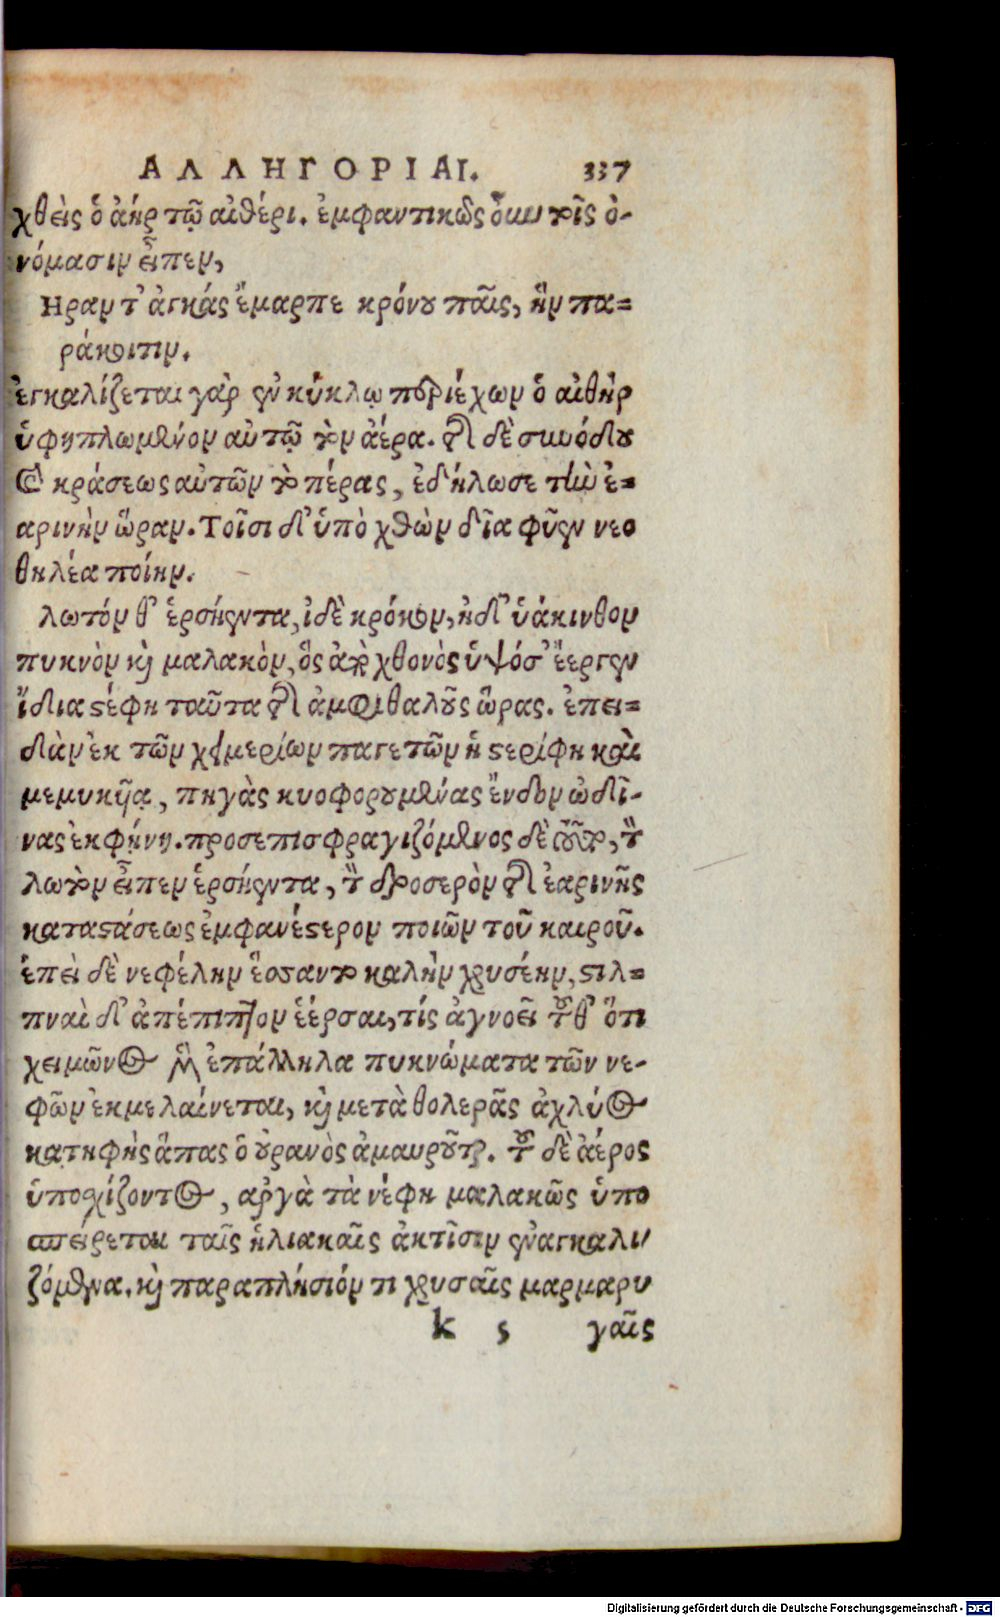 ΑΛΛΗΓΟΡΙΑΙ. 337
χθεὶς ὁ ἀήρ τῷ αἰθέρι. ἐμφαντικῶς οὖν τοῖς ὀ-
νόμασιν εἶπεν,
Ηραν τ' ἀγκάς ἔμαρπε κρόνου παῖς, ἣν πα=
ράκοιτιν.
ἐγκαλίζεται γὰρ ἐν κύκλῳ περιέχων ὁ αἰθὴρ
ὑφηπλωμένον αὐτῷ τὸν ἀέρα. διὰ δὲ συνόδου
καὶ κράσεως αὐτῶν τὸ πέρας, ἐδήλωσε τὴν ἐ=
αρινὴν ὥραν. Τοῖσι δ' ὑπὸ χθὼν δῖα φῦεν νεο
θηλέα ποίην.
λωτόν θ' ἑρσήεντα, ἰδὲ κρόκον, ἠδ' ὑάκινθον
πυκνὸν καὶ μαλακὸν, ὃς ἀπὸ χθονὸς ὑψόσ' ἔεργεν
ἴδια στέφη ταῦτα διὰ ἀμφιθαλοῦς ὥρας. ἐπει=
δὰν ἐκ τῶν χειμερίων παγετῶν ἡ στερίφη καὶ
μεμυκῆα, πηγὰς κυοφορουμένας ἔνδον ὠδῖ-
νας ἐκφήνῃ. προσεπισφραγιζόμενος δὲ τοῦτο, τὸν
λωτὸν εἶπεν ἑρσήεντα, τὸ δροσερὸν διὰ ἐαρινῆς
καταστάσεως ἐμφανέστερον ποιῶν τοῦ καιροῦ.
ἐπεὶ δὲ νεφέλην ἕσσαντο καλὴν χρυσέην, στιλ=
πναὶ δ' ἀπέπιπτον ἑέρσαι, τίς ἀγνοεῖ τοῦθ' ὅτι
χειμῶνος μὲν ἐπάλληλα πυκνώματα τῶν νε-
φῶν ἐκμελαίνεται, καὶ μετὰ θολερᾶς ἀχλύος
κατηφὴς ἅπας ὁ οὐρανὸς ἀμαυροῦται. τοῦ δὲ ἀέρος
ὑποσχίζοντος, ἀργὰ τὰ νέφη μαλακῶς ὑπο
σπείρεται ταῖς ἡλιακαῖς ἀκτῖσιν ἐναγκαλι
ζόμενα. καὶ παραπλήσιόν τι χρυσαῖς μαρμαρυ
k 5 γαῖς
Digitalisierung gefördert durch die Deutsche Forschungsgemeinschaft - DFG